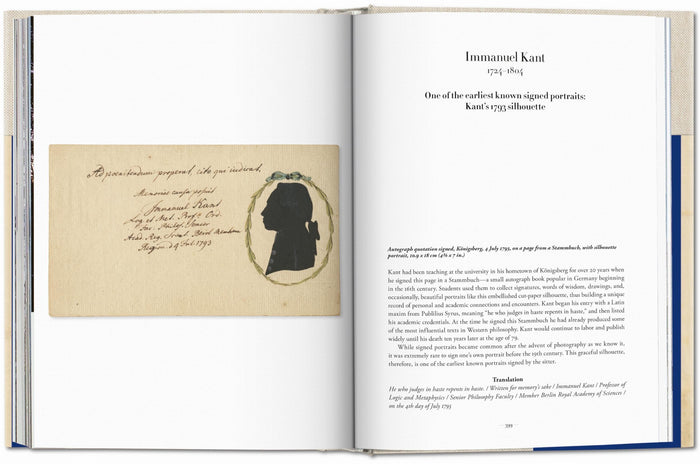 Ad poenitendum properat, cito qui iudicat,
Memoriae causa posuit
Immanuel Kant
Log et Met. Prof. Ord.
Fac. Philos. Senior
Acad. Reg. Scient. Berol. Membrum
d 4 Jul. 1793
Immanuel Kant
1724–1804
One of the earliest known signed portraits:
Kant's 1793 silhouette
Autograph quotation signed, Königsberg, 4 July 1793, on a page from a Stammbuch, with silhouette
portrait, 10.9 x 18 cm (4⅜ x 7 in.)
Kant had been teaching at the university in his hometown of Königsberg for over 20 years when
he signed this page in a Stammbuch—a small autograph book popular in Germany beginning
in the 16th century. Students used them to collect signatures, words of wisdom, drawings, and,
occasionally, beautiful portraits like this embellished cut-paper silhouette, thus building a unique
record of personal and academic connections and encounters. Kant began his entry with a Latin
maxim from Publilius Syrus, meaning "he who judges in haste repents in haste," and then listed
his academic credentials. At the time he signed this Stammbuch he had already produced some
of the most influential texts in Western philosophy. Kant would continue to labor and publish
widely until his death ten years later at the age of 79.
While signed portraits became common after the advent of photography as we know it,
it was extremely rare to sign one's own portrait before the 19th century. This graceful silhouette,
therefore, is one of the earliest known portraits signed by the sitter.
Translation
He who judges in haste repents in haste. / Written for memory's sake / Immanuel Kant / Professor of
Logic and Metaphysics / Senior Philosophy Faculty / Member Berlin Royal Academy of Sciences /
on the 4th day of July 1793